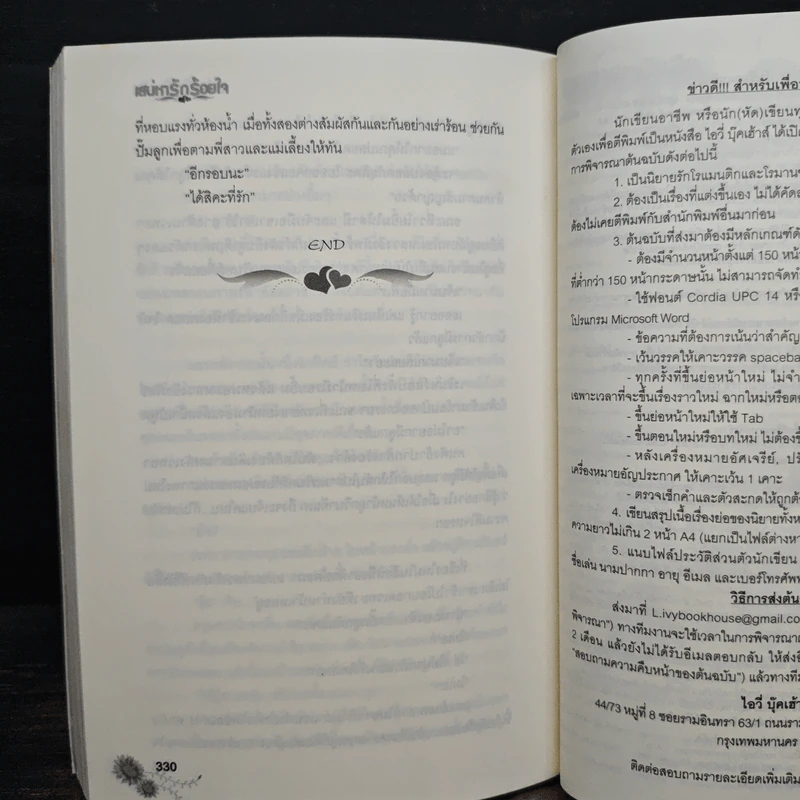 เสน่หารักร้อยใจ
ที่หอบแรงทั่วห้องน้ำ เมื่อทั้งสองต่างสัมผัสกันและกันอย่างเร่าร้อน ช่วยกัน
ปั๊มลูกเพื่อตามพี่สาวและแม่เลี้ยงให้ทัน
“อีกรอบนะ”
“ได้สิคะที่รัก”
END
330
ข่าวดี!!! สำหรับเพื่อ
นักเขียนอาชีพ หรือนัก(หัด)เขียน
ตัวเองเพื่อตีพิมพ์เป็นหนังสือ ไอวี่ บุ๊คเฮ้าส์ ได้เปิ
การพิจารณาต้นฉบับดังต่อไปนี้
1. เป็นนิยายรักโรแมนติกและโรมาน
2. ต้องเป็นเรื่องที่แต่งขึ้นเอง ไม่ได้คัด
ต้องไม่เคยตีพิมพ์กับสำนักพิมพ์อื่นมาก่อน
3. ต้นฉบับที่ส่งมาต้องมีหลักเกณฑ์ดั
- ต้องมีจำนวนหน้าตั้งแต่ 150 หน้า
ที่ต่ำกว่า 150 หน้ากระดาษนั้น ไม่สามารถจัดทำ
- ใช้ฟอนต์ Cordia UPC 14 หรื
โปรแกรม Microsoft Word
- ข้อความที่ต้องการเน้นว่าสำคัญ
- เว้นวรรคให้เคาะวรรค spaceba
- ทุกครั้งที่ขึ้นย่อหน้าใหม่ ไม่จำ
เฉพาะเวลาที่จะขึ้นเรื่องราวใหม่ ฉากใหม่หรือต
- ขึ้นย่อหน้าใหม่ให้ใช้ Tab
- ขึ้นตอนใหม่หรือบทใหม่ ไม่ต้องขึ้
- หลังเครื่องหมายอัศเจรีย์, ปรั
เครื่องหมายอัญประกาศ ให้เคาะเว้น 1 เคาะ
- ตรวจเช็กคำและตัวสะกดให้ถูกต้
4. เขียนสรุปเนื้อเรื่องย่อของนิยายทั้งห
ความยาวไม่เกิน 2 หน้า A4 (แยกเป็นไฟล์ต่างหา
5. แนบไฟล์ประวัติส่วนตัวนักเขียน
ชื่อเล่น นามปากกา อายุ อีเมล และเบอร์โทรศัพท
วิธีการส่งต้น
ส่งมาที่ L.ivybookhouse@gmail.co
พิจารณา”) ทางทีมงานจะใช้เวลาในการพิจารณา
2 เดือน แล้วยังไม่ได้รับอีเมลตอบกลับ ให้ส่งอี
“สอบถามความคืบหน้าของต้นฉบับ”) แล้วทางที
ไอวี่ บุ๊คเฮ้า
44/73 หมู่ที่ 8 ซอยรามอินทรา 63/1 ถนนรา
กรุงเทพมหานคร
ติดต่อสอบถามรายละเอียดเพิ่มเติม